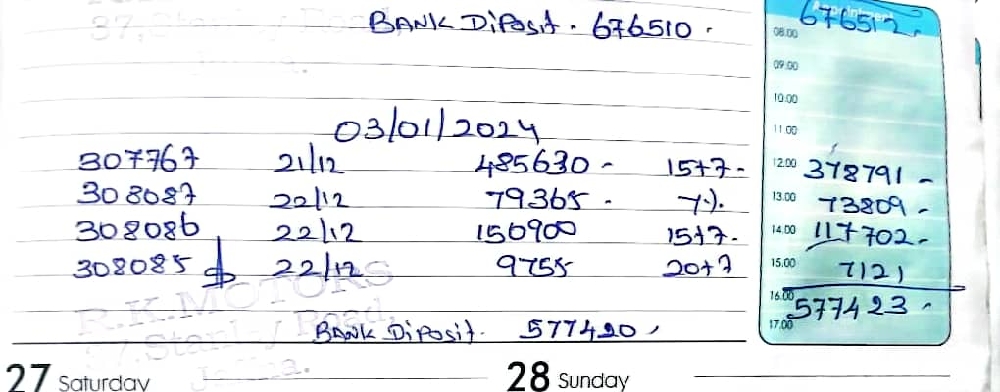 BANK Diposit. 676510. 676512.
08.00
09.00
10.00
11.00
03/01/2024
307767 21/12 485630 - 15+7- 12.00 378791 -
308087 22/12 79365 - 7%. 13.00 73809 -
308086 22/12 150900 15+7. 14.00 117702 -
308085 22/12 9755 20+7 15.00 7121
R.K.MOTORS 16.00 577423 -
BANK Diposit. 577420 17.00
27 Saturday 28 Sunday